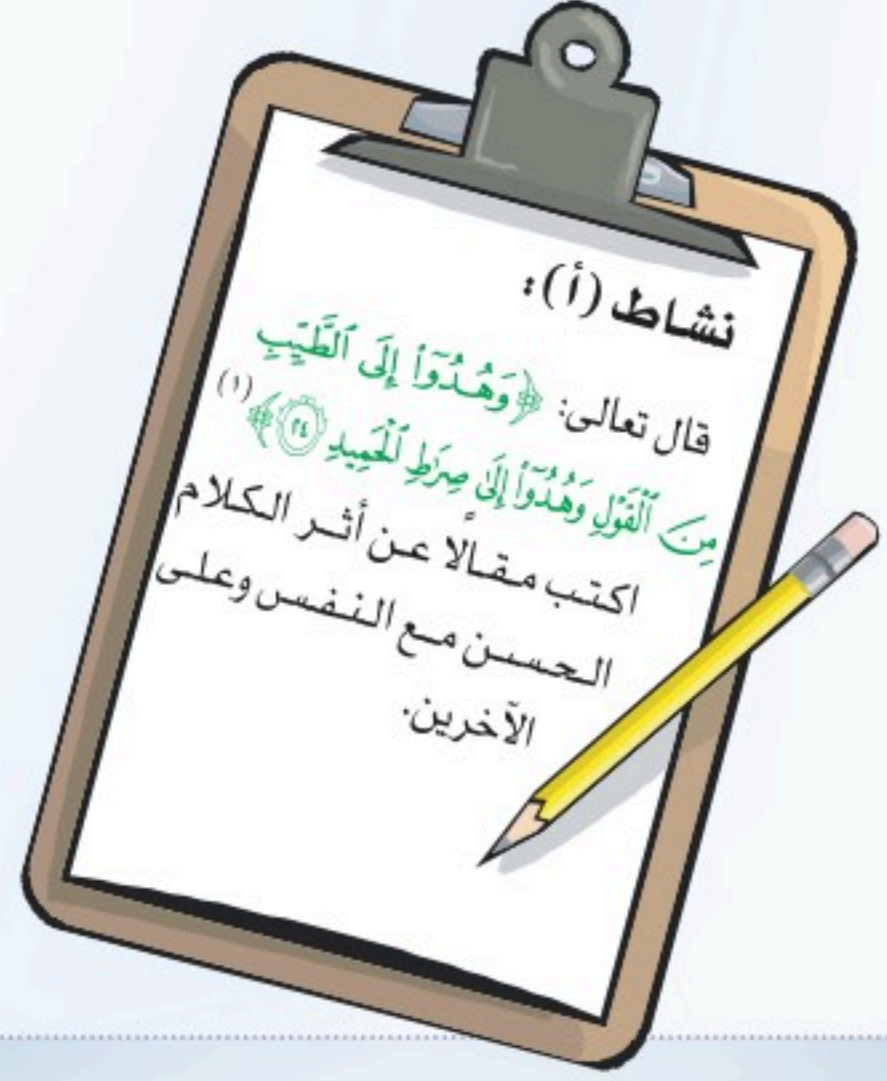 نشاط (أ):
قال تعالى: ﴿وَهُدُوٓاْ إِلَى ٱلطَّيِّبِ
مِنَ ٱلْقَوْلِ وَهُدُوٓاْ إِلَىٰ صِرَٰطِ ٱلْحَمِيدِ ٢٤﴾ (١)
اكتب مقالًا عن أثر الكلام
الحسن مع النفس وعلى
الآخرين.